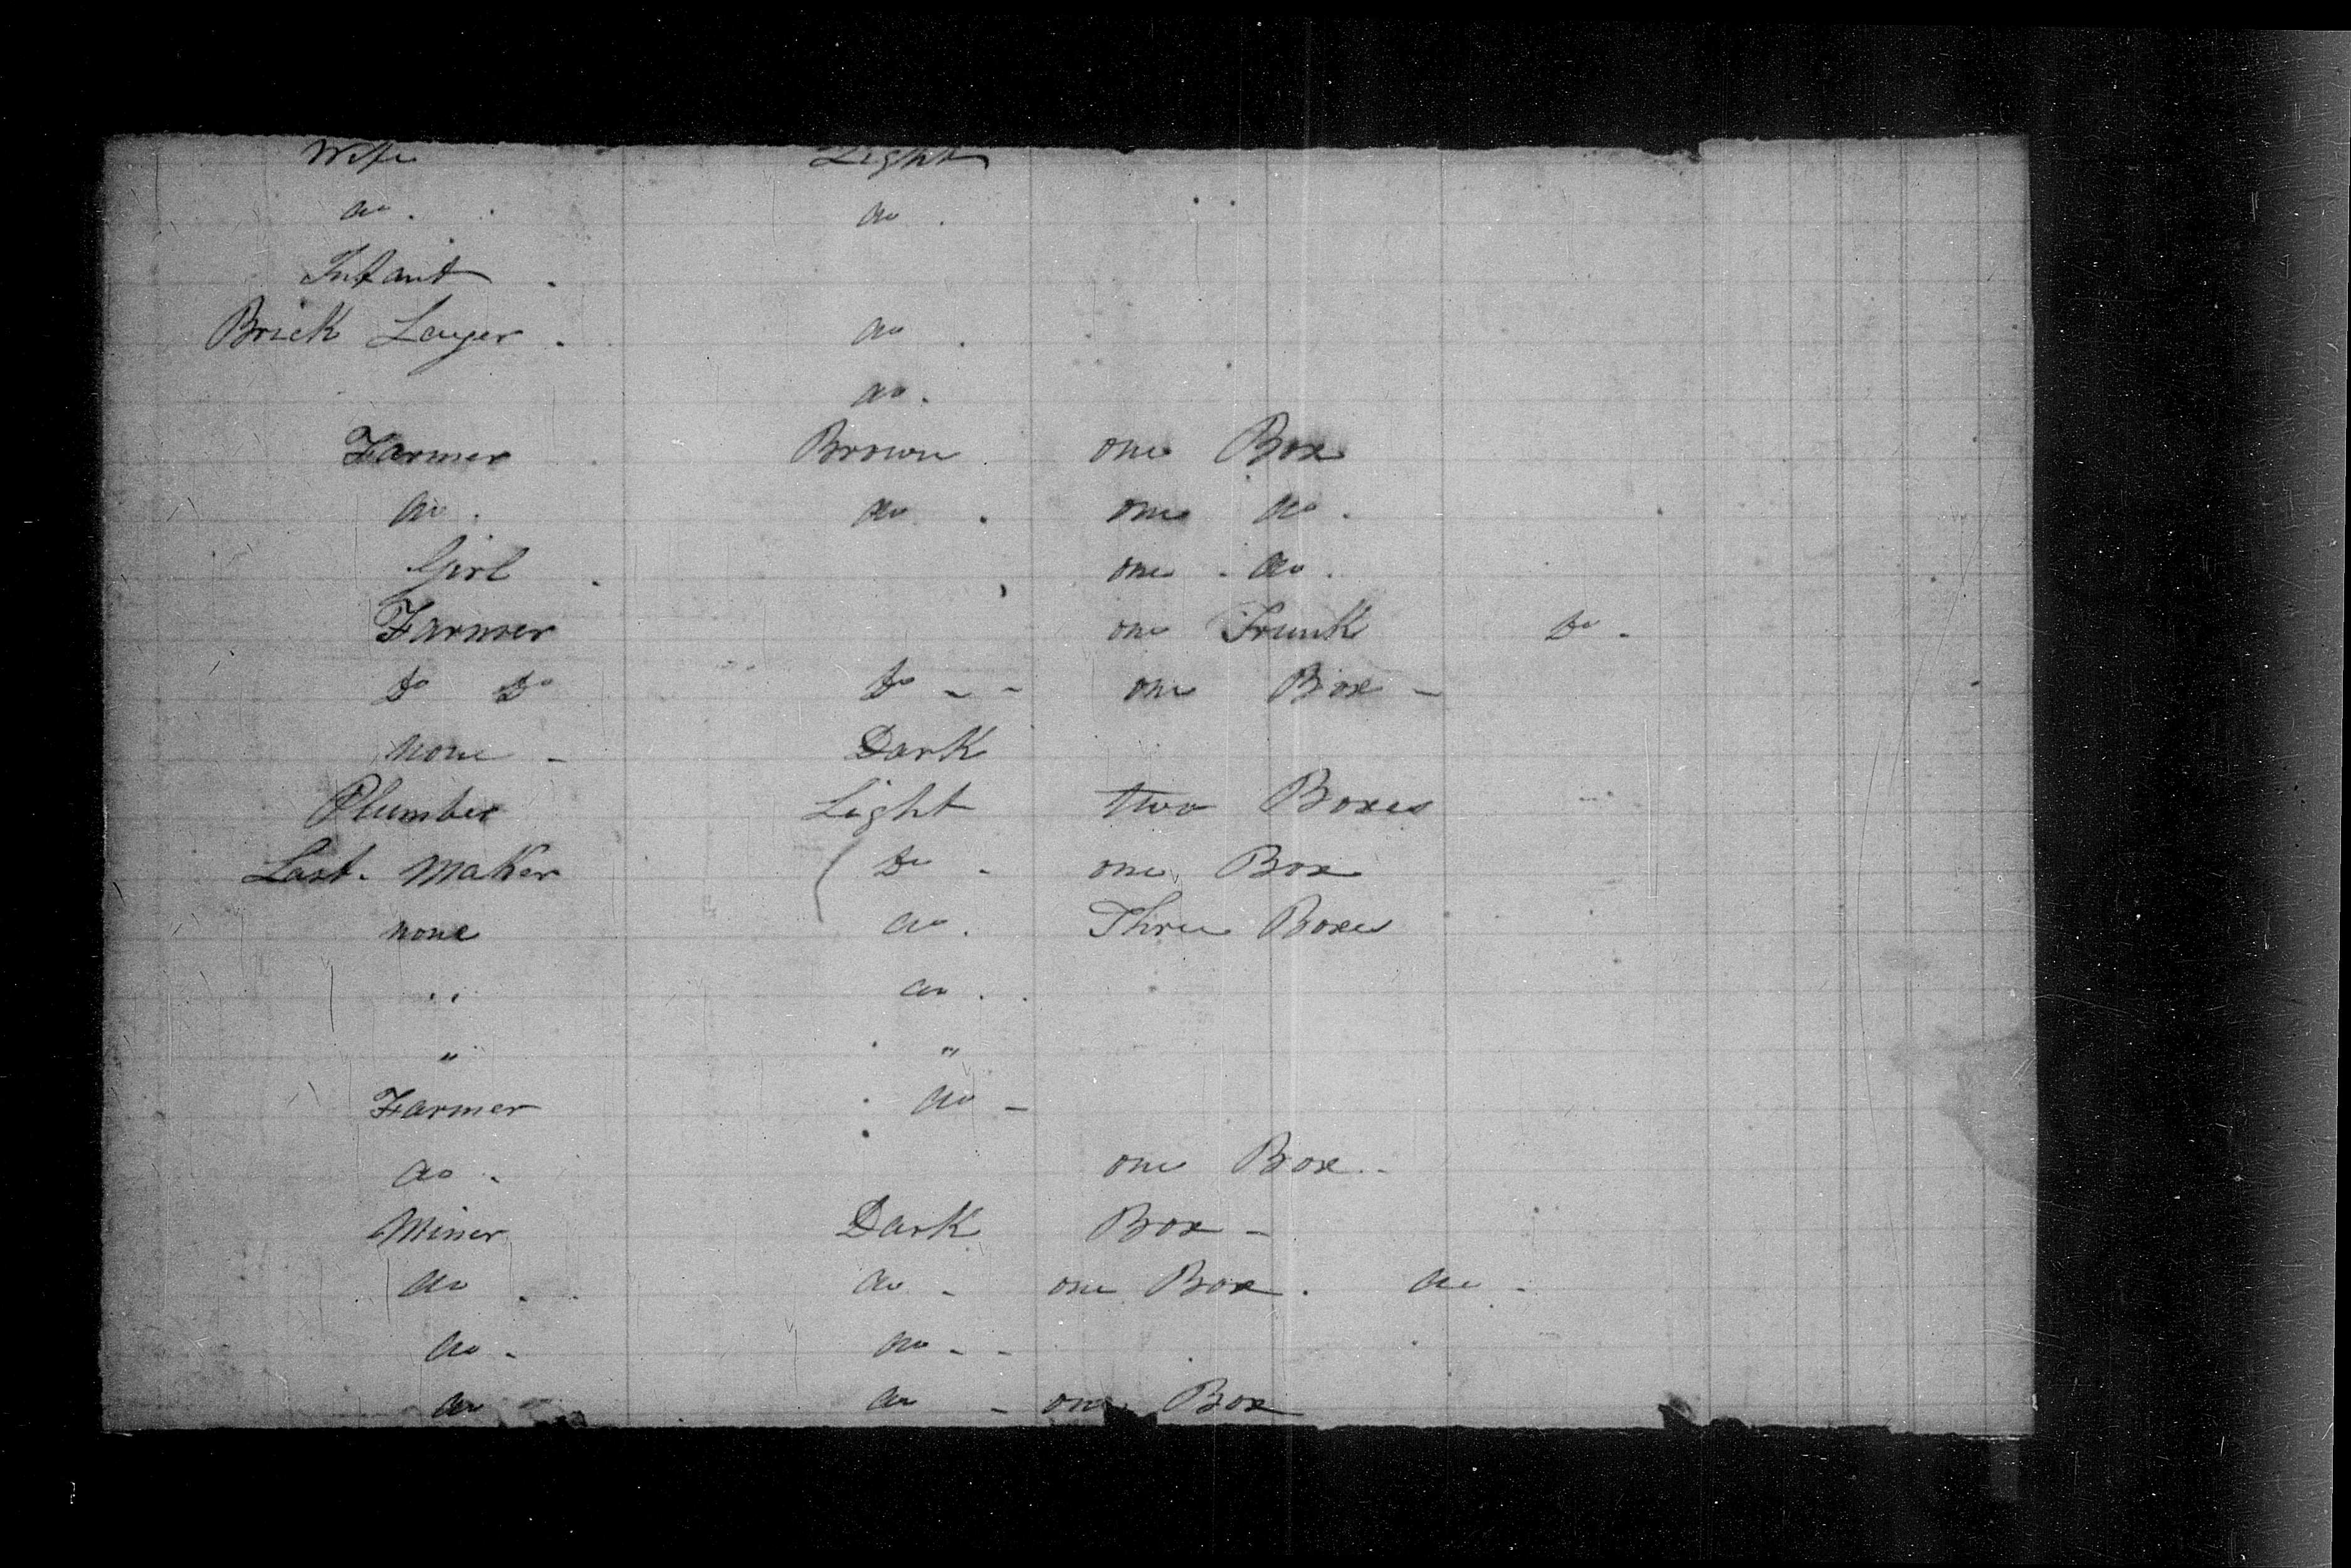 Wife Light
do . do .
Infant .
Brick Layer . do .
do .
Farmer Brown one Box
do . do . one do .
Girl . one . do .
Farmer one Trunk Do .
Do Do Do - - one Box -
none - Dark
Plumber Light two Boxes
Last . Maker Do - one Box
none do . Three Boxes
" do . .
" "
Farmer do -
do . one Box . -
Miner Dark Box -
do . do - one Box . do -
do - do - -
do do - one Box